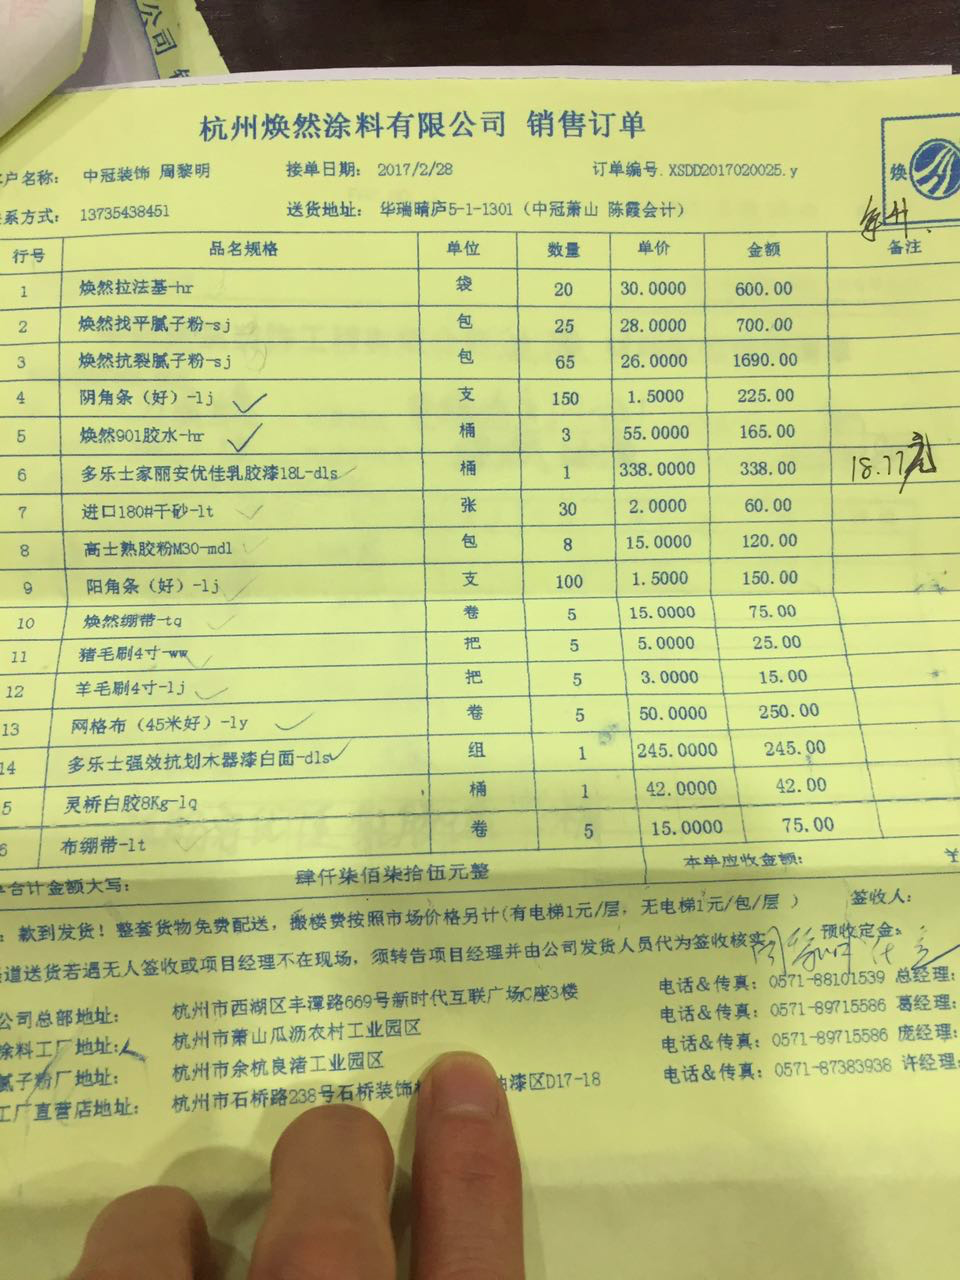 公司
杭州焕然涂料有限公司 销售订单
焕
户名称: 中冠装饰 周黎明 接单日期: 2017/2/28 订单编号.XSDD2017020025.y
系方式: 13735438451 送货地址: 华瑞晴庐5-1-1301（中冠萧山 陈霞会计）
行号 品名规格 单位 数量 单价 金额 备注
1 焕然拉法基-hr 袋 20 30.0000 600.00
2 焕然找平腻子粉-sj 包 25 28.0000 700.00
3 焕然抗裂腻子粉-sj 包 65 26.0000 1690.00
4 阴角条（好）-lj 支 150 1.5000 225.00
5 焕然901胶水-hr 桶 3 55.0000 165.00
6 多乐士家丽安优佳乳胶漆18L-dls 桶 1 338.0000 338.00 18.77元
7 进口180#干砂-lt 张 30 2.0000 60.00
8 高士熟胶粉M30-mdl 包 8 15.0000 120.00
9 阳角条（好）-lj 支 100 1.5000 150.00
10 焕然绷带-tq 卷 5 15.0000 75.00
11 猪毛刷4寸-ww 把 5 5.0000 25.00
12 羊毛刷4寸-lj 把 5 3.0000 15.00
13 网格布（45米好）-ly 卷 5 50.0000 250.00
14 多乐士强效抗划木器漆白面-dls 组 1 245.0000 245.00
5 灵桥白胶8Kg-lq 桶 1 42.0000 42.00
6 布绷带-lt 卷 5 15.0000 75.00
合计金额大写: 肆仟柒佰柒拾伍元整 本单应收金额: ¥
: 款到发货！整套货物免费配送，搬楼费按照市场价格另计(有电梯1元/层，无电梯1元/包/层 ) 签收人:
道送货若遇无人签收或项目经理不在现场，须转告项目经理并由公司发货人员代为签收核实 预收定金:
公司总部地址: 杭州市西湖区丰潭路669号新时代互联广场C座3楼 电话&传真: 0571-88101539 总经理:
涂料工厂地址: 杭州市萧山瓜沥农村工业园区 电话&传真: 0571-89715586 葛经理:
腻子粉厂地址: 杭州市余杭良渚工业园区 电话&传真: 0571-89715586 庞经理:
工厂直营店地址: 杭州市石桥路238号石桥装饰 油漆区D17-18 电话&传真: 0571-87383938 许经理: